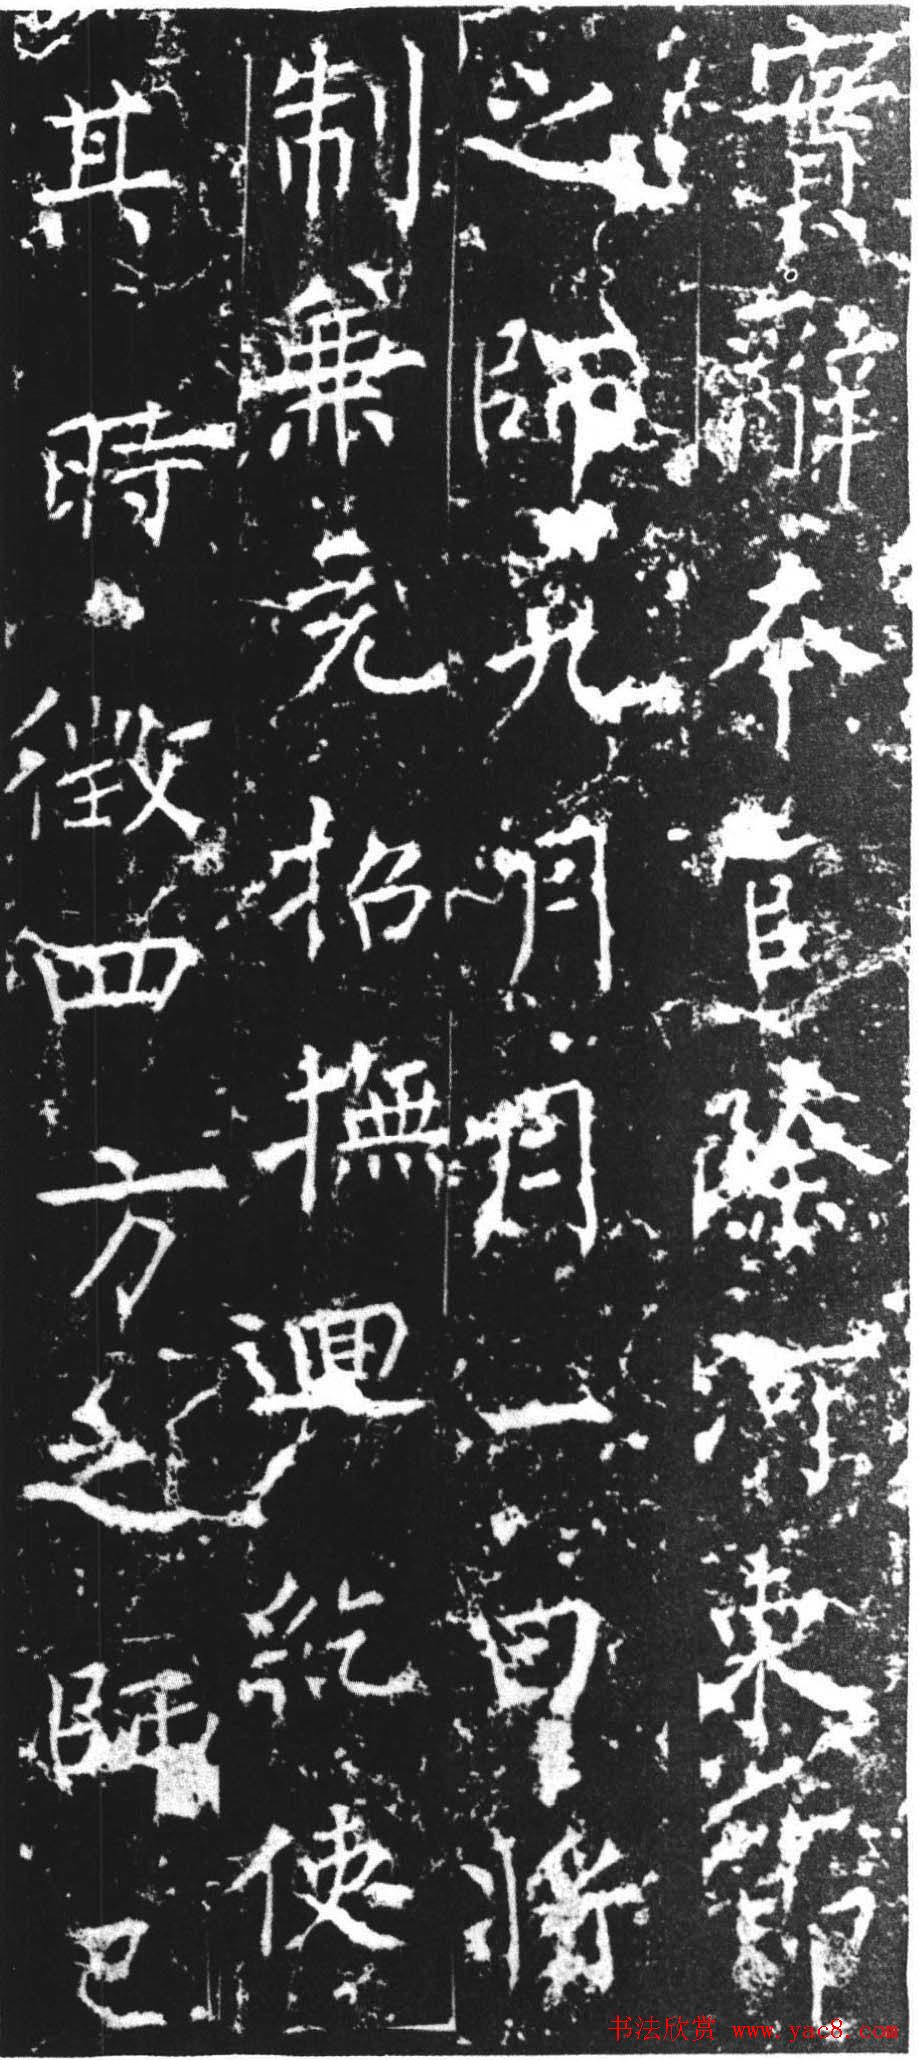 實辭本官除河東節
之師月一日將
制兼充招撫迴紇使
其時徵四方之師已
书法欣赏 www.yac8.com